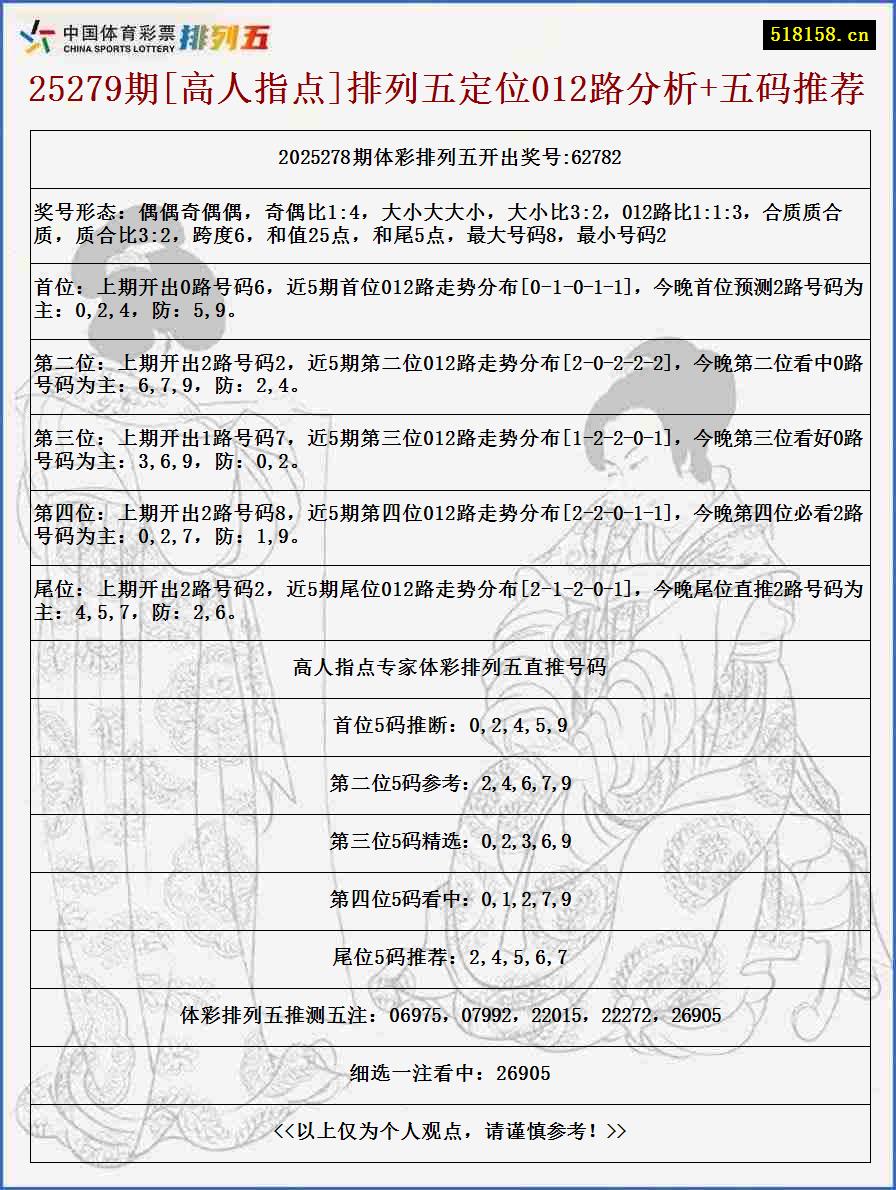 中国体育彩票
CHINA SPORTS LOTTERY
排列五
518158.cn
25279期[高人指点]排列五定位012路分析+五码推荐
2025278期体彩排列五开出奖号:62782
奖号形态：偶偶奇偶偶，奇偶比1:4，大小大大小，大小比3:2，012路比1:1:3，合质质合
质，质合比3:2，跨度6，和值25点，和尾5点，最大号码8，最小号码2
首位：上期开出0路号码6，近5期首位012路走势分布[0-1-0-1-1]，今晚首位预测2路号码为
主：0,2,4，防：5,9。
第二位：上期开出2路号码2，近5期第二位012路走势分布[2-0-2-2-2]，今晚第二位看中0路
号码为主：6,7,9，防：2,4。
第三位：上期开出1路号码7，近5期第三位012路走势分布[1-2-2-0-1]，今晚第三位看好0路
号码为主：3,6,9，防：0,2。
第四位：上期开出2路号码8，近5期第四位012路走势分布[2-2-0-1-1]，今晚第四位必看2路
号码为主：0,2,7，防：1,9。
尾位：上期开出2路号码2，近5期尾位012路走势分布[2-1-2-0-1]，今晚尾位直推2路号码为
主：4,5,7，防：2,6。
高人指点专家体彩排列五直推号码
首位5码推断：0,2,4,5,9
第二位5码参考：2,4,6,7,9
第三位5码精选：0,2,3,6,9
第四位5码看中：0,1,2,7,9
尾位5码推荐：2,4,5,6,7
体彩排列五推测五注：06975，07992，22015，22272，26905
细选一注看中：26905
<<以上仅为个人观点，请谨慎参考！>>